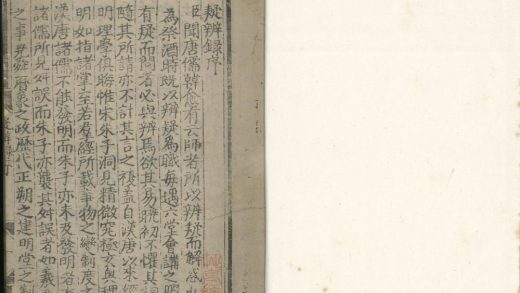 疑辨録序
臣聞唐儒韓愈有云師者所以辨疑而解惑
為祭酒時既以辨疑為職每遇六堂會講之暇
有疑而問者必與辨焉欲其易曉初不懼其詞
隨其所請亦不計其言之複蓋自漢唐以來經
明理學俱晦惟宋朱子洞見精微究極玄奥理
明如指諸掌至若羣經所載事物之變制度之
漢唐諸儒不能發明而朱子亦未及發明者
諸儒所見舛誤而朱子亦襲其舛誤者如羲
之事曆象之政歷代正朔之建明堂之制